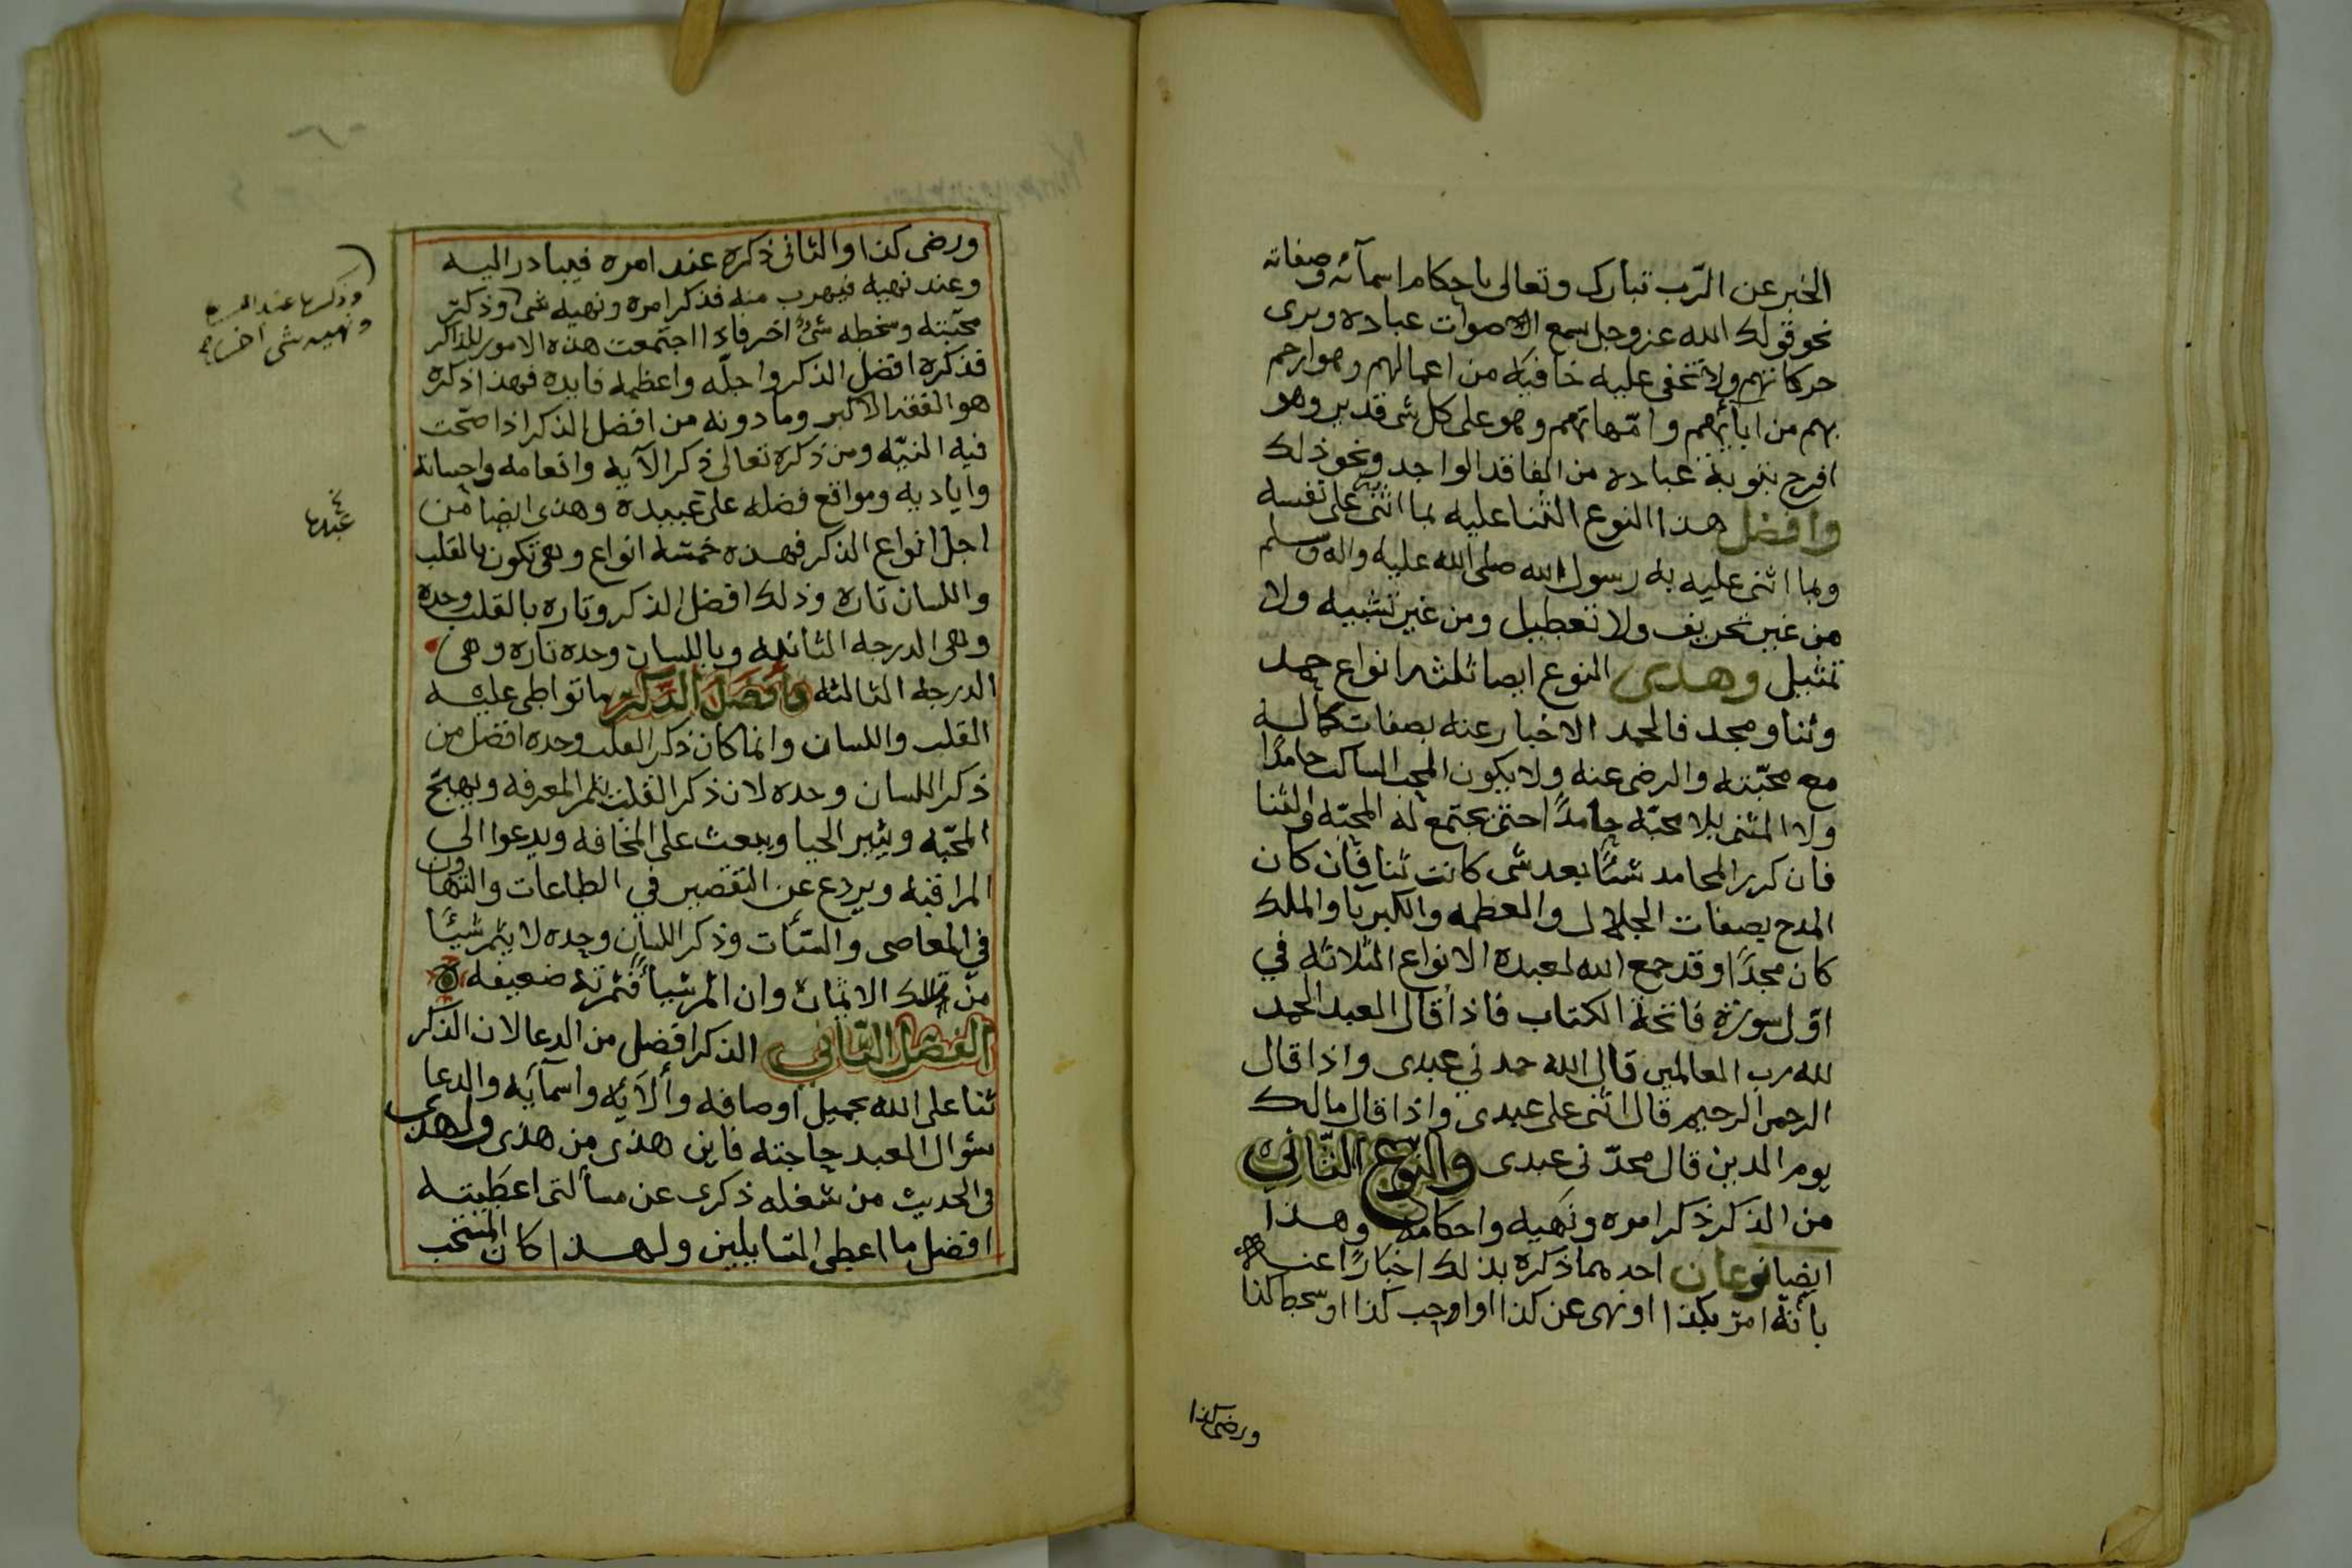 الخبر عن الرّب تبارك وتعالى باحكام اسمآئه وصفاته
نحو قولك الله عز وجل سمع الاصوات عباده ويرى
حركاتهم ولا تخفى عليه خافيه من اعمالهم وهو ارحم
بهم من ابآئهم وامّهاتهم وهو على كل شى قدير وهو
افرح بتوبة عباده من الفاقد الواجد ونحو ذلك
وافضل هذا النوع الثنا عليه بما اثنى به على نفسه
وبما اثنى عليه به رسول الله صلى الله عليه واله وسلم
من غير تحريف ولا تعطيل ومن غير تشبيه ولا
تمثيل وهذى النوع ايضا ثلثه انواع حمد
وثنا ومجد فالحمد الاخبار عنه بصفات كماله
مع محبّته والرضى عنه ولا يكون المحب الساكت حامدًا
ولا المثنى بلا محبّه حامدًا حتى تجتمع له المحبّه والثنا
فان كرر المحامد شئًا بعد شى كانت ثنا فان كان
المدح بصفات الجلال والعظمه والكبريا والملك
كان مجدًا وقد جمع الله لعبده الانواع الثلاثه في
اوّل سورة فاتحة الكتاب فاذا قال العبد الحمد
لله رب العالمين قال الله حمدني عبدى واذا قال
الرحمن الرحيم قال اثنى على عبدى واذا قال مالك
يوم الدين قال مجدّنى عبدى والنوع الثاني
من الذكر ذكر امره ونهيه واحكامه وهذا
ايضا نوعان احدهما ذكره بذلك اخبارًا عنه
بأنّه امر بكذا او نهى عن كذا او اوجب كذا او سخط كذا
ورضى كذا
ورضى كذا والثانى ذكره عند امره فيبادر اليه
وعند نهيه فيهرب منه فذكر امره ونهيه شى وذكر
محبّته وسخطه شىء اخر فاذا اجتمعت هذه الامور للذاكر
فذكره افضل الذكر واجلّه واعظمه فايده فهذا ذكره
هو الفقه الاكبر وما دونه من افضل الذكر اذا صحّت
فيه النيّه ومن ذكره تعالى ذكر الآيه وانعامه واحسانه
واياديه ومواقع فضله على عبيده وهذى ايضا من
اجل انواع الذكر فهذه خمسه انواع وهى تكون بالقلب
واللسان تاره وذلك افضل الذكر وتاره بالقلب وحده
وهى الدرجه الثانيه وباللسان وحده تاره وهى
الدرجه الثالثه وافضل الذكر ما تواطى عليه
القلب واللسان وانما كان ذكر القلب وحده افضل من
ذكر اللسان وحده لان ذكر القلب يثمر المعرفه ويهيج
المحبّه ويثير الحيا ويبعث على المخافه ويدعوا الى
المراقبه ويردع عن التقصير في الطاعات والتهاون
في المعاصى والسئات وذكر اللسان وحده لا يثمر شيئًا
من تلك الاثمان وان اثمر شيأ فثمرته ضعيفه
الفصل الثاني الذكر افضل من الدعا لان الذكر
ثنا على الله بجميل اوصافه وألآيه واسمآيه والدعا
سؤال العبد حاجته فاين هذى من هذى ولهذى
في الحديث من شغله ذكرى عن مسألتى اعطيته
افضل ما اعطى السايلين ولهذا كان المستحب
ونهيه شى اخر
عبدها